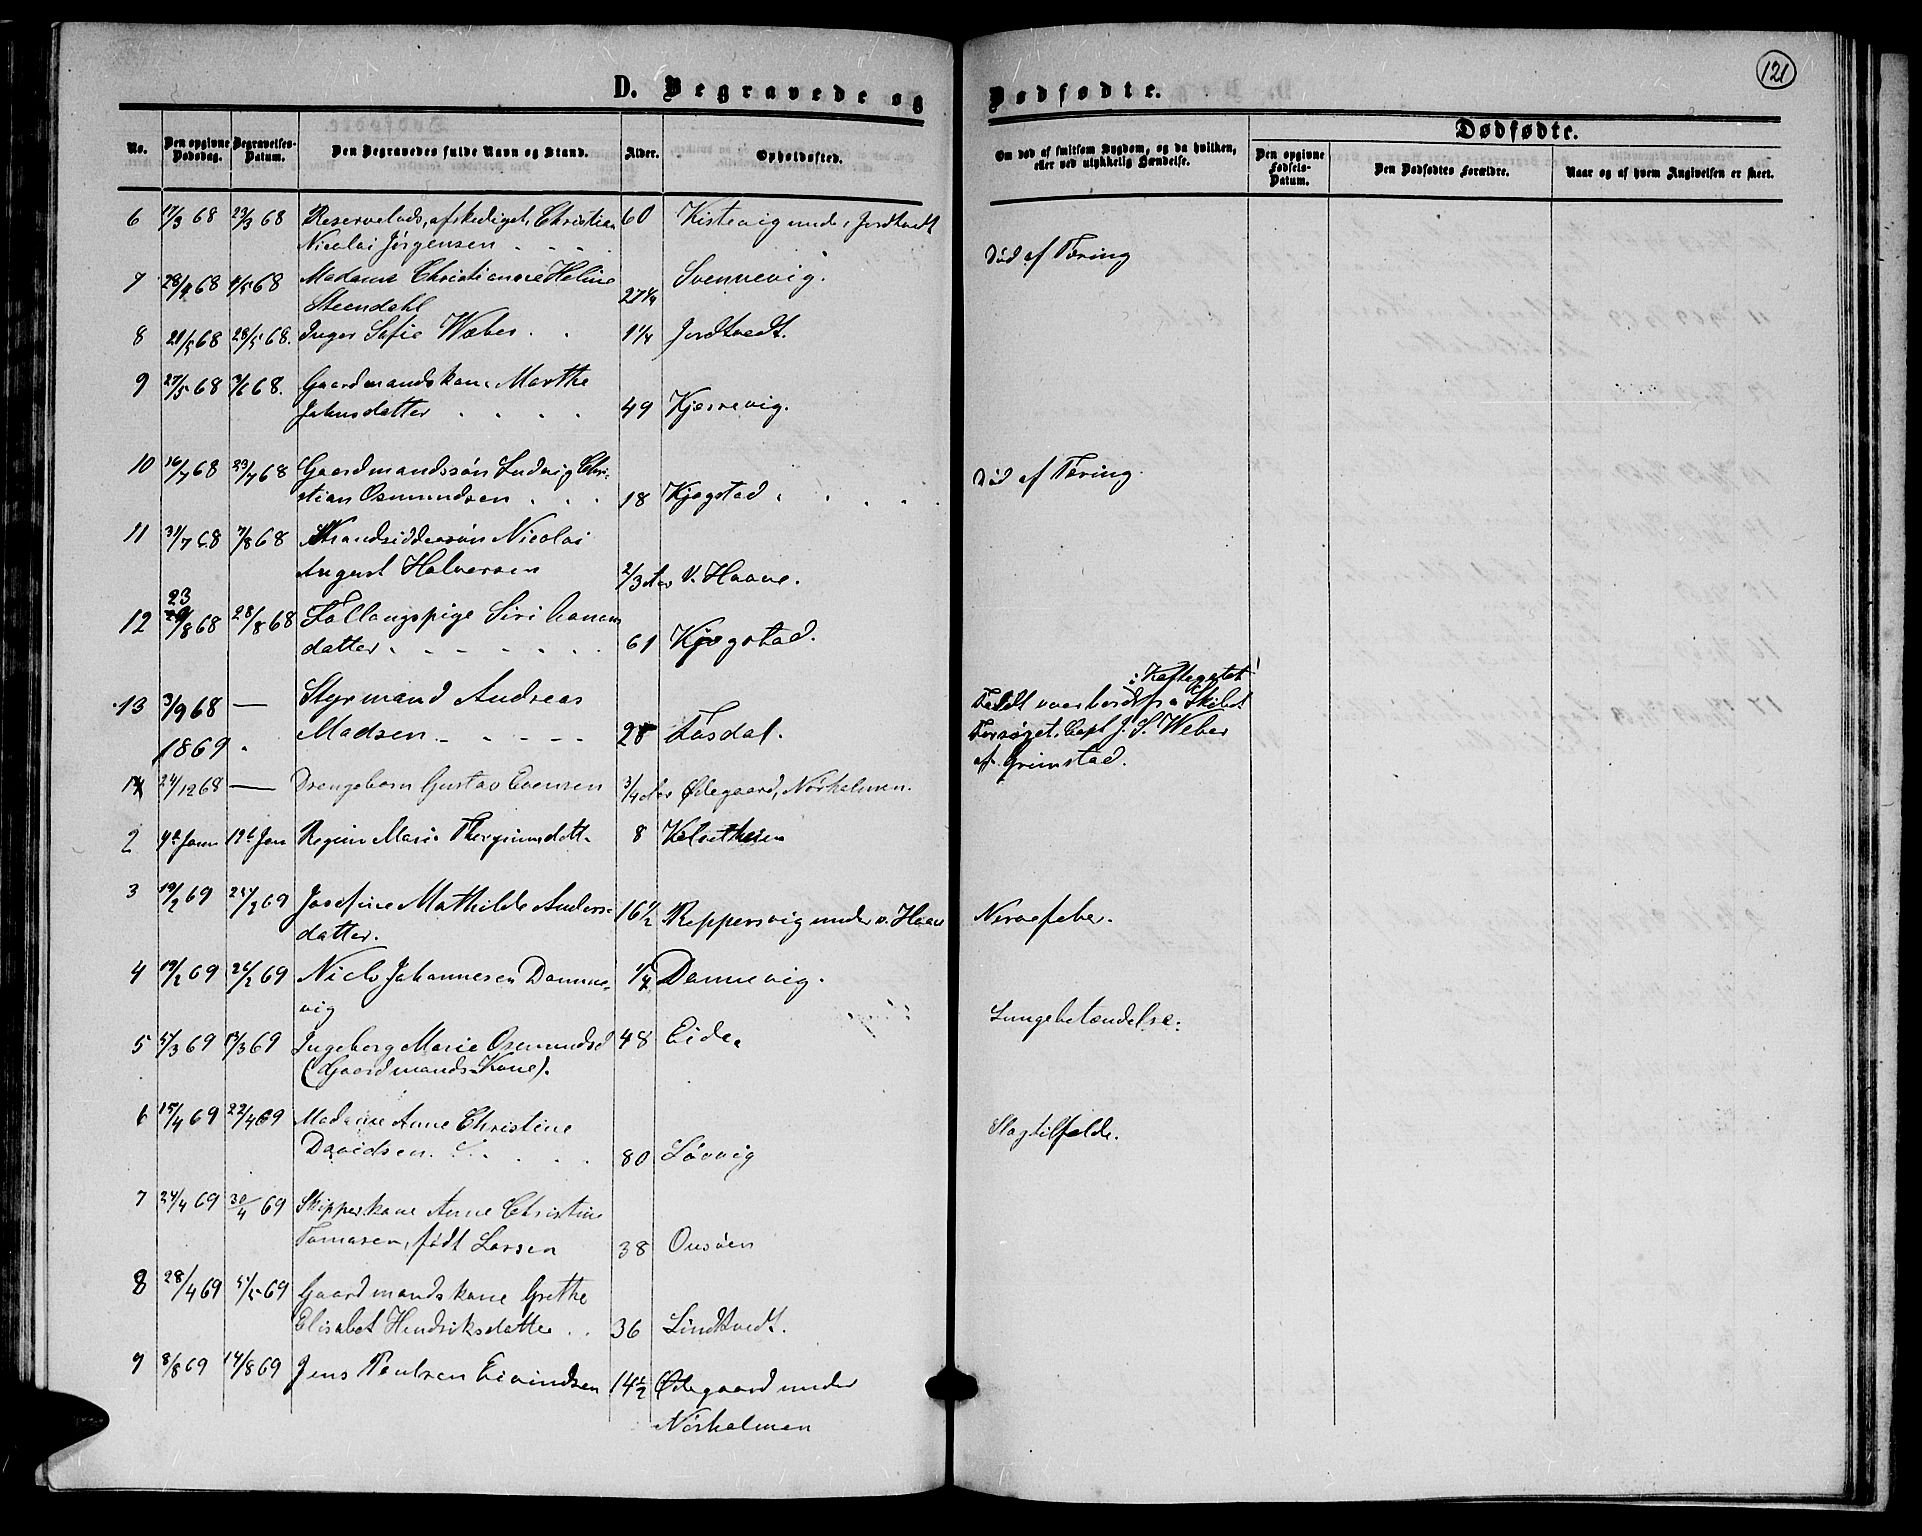 121
D. Begravede og Dødfødte.
No.
Den opgivne Dødsdag.
Begravelses-Datum.
Den Begravedes fulde Navn og Stand.
Alder.
Opholdssted.
Om død af smitsom Sygdom, og da hvilken,
eller ved ulykkelig Hændelse.
Dødfødte.
Den opgivne Fødsels-Datum.
Den Dødfødtes Forældre.
Naar og af hvem Angivelsen er skeet.
6 17/3 68 23/3 68 Reservelods, afskediget, Christian 60 Kistevig under Jordtvedt
Nicolai Jørgensen
Død af Tæring
7 28/4 68 4/5 68 Madame Christiane Heline Svennevig.
Steendahl 27 1/4
8 21/5 68 28/5 68. Inger Sofie Wæber 1 1/4 Jordtvedt.
9 27/5 68 3/6 68. Gaardmandskone Marthe
Johnsdatter 49 Kjærevig.
10 16/7 68 23/7 68 Gaardmandssøn Ludvig Chri-
stian Osmundsen 18 Kjøgstad. Død af Tæring.
11 31/7 68 7/8 68 Strandsiddersøn Nicolai
August Halversen 2/3 Aar V. Haave.
23
12 /8 68 28/8 68 Føllaugspige Siri
datter 61 Kjøgstad.
13 3/9 68 — Styrmand Andreas
Madsen 28 Fosdal.
Kattegatet
Faldt overbord fra Skibet
Forsøget, Capt J. S. Weber
af Grimstad.
1869
1 24/12 68 — Drengebarn Gustav Evensen 3/4 Aar Ødegaard, Nørholmen.
2 9de Janu 19de Jan Regine Marie Thergrimsdatt. 8
3 19/2 69 25/2 69 Josefine Mathilde Anders-
datter. 16 1/2 Reppersvig under v. Haave Nervefeber.
4 19/2 69 24/2 69 Niels Johannesen Danne-
vig 1/4 Dannevig.
Lungebetændelse.
5 5/3 69 /3 69 Ingeborg Marie Osmundsd 48 Eide.
(Gaardmands Kone).
6 15/4 69 22/4 69 Madame Anne Christine
Davidsen. 80 Løvvig Slagtilfælde.
7 24/4 69 30/4 69 Skipperkone Anne Christine
Tomasen, født Larsen 38 Omsøen
8 28/4 69 5/5 69 Gaardmandskone Grethe
Elisabet Hendriksdatter 36 Lindtvedt.
9 8/8 69 14/8 69 Jens Poulsen Eivindsen 14 1/2 Ødegaard under
Nørholmen